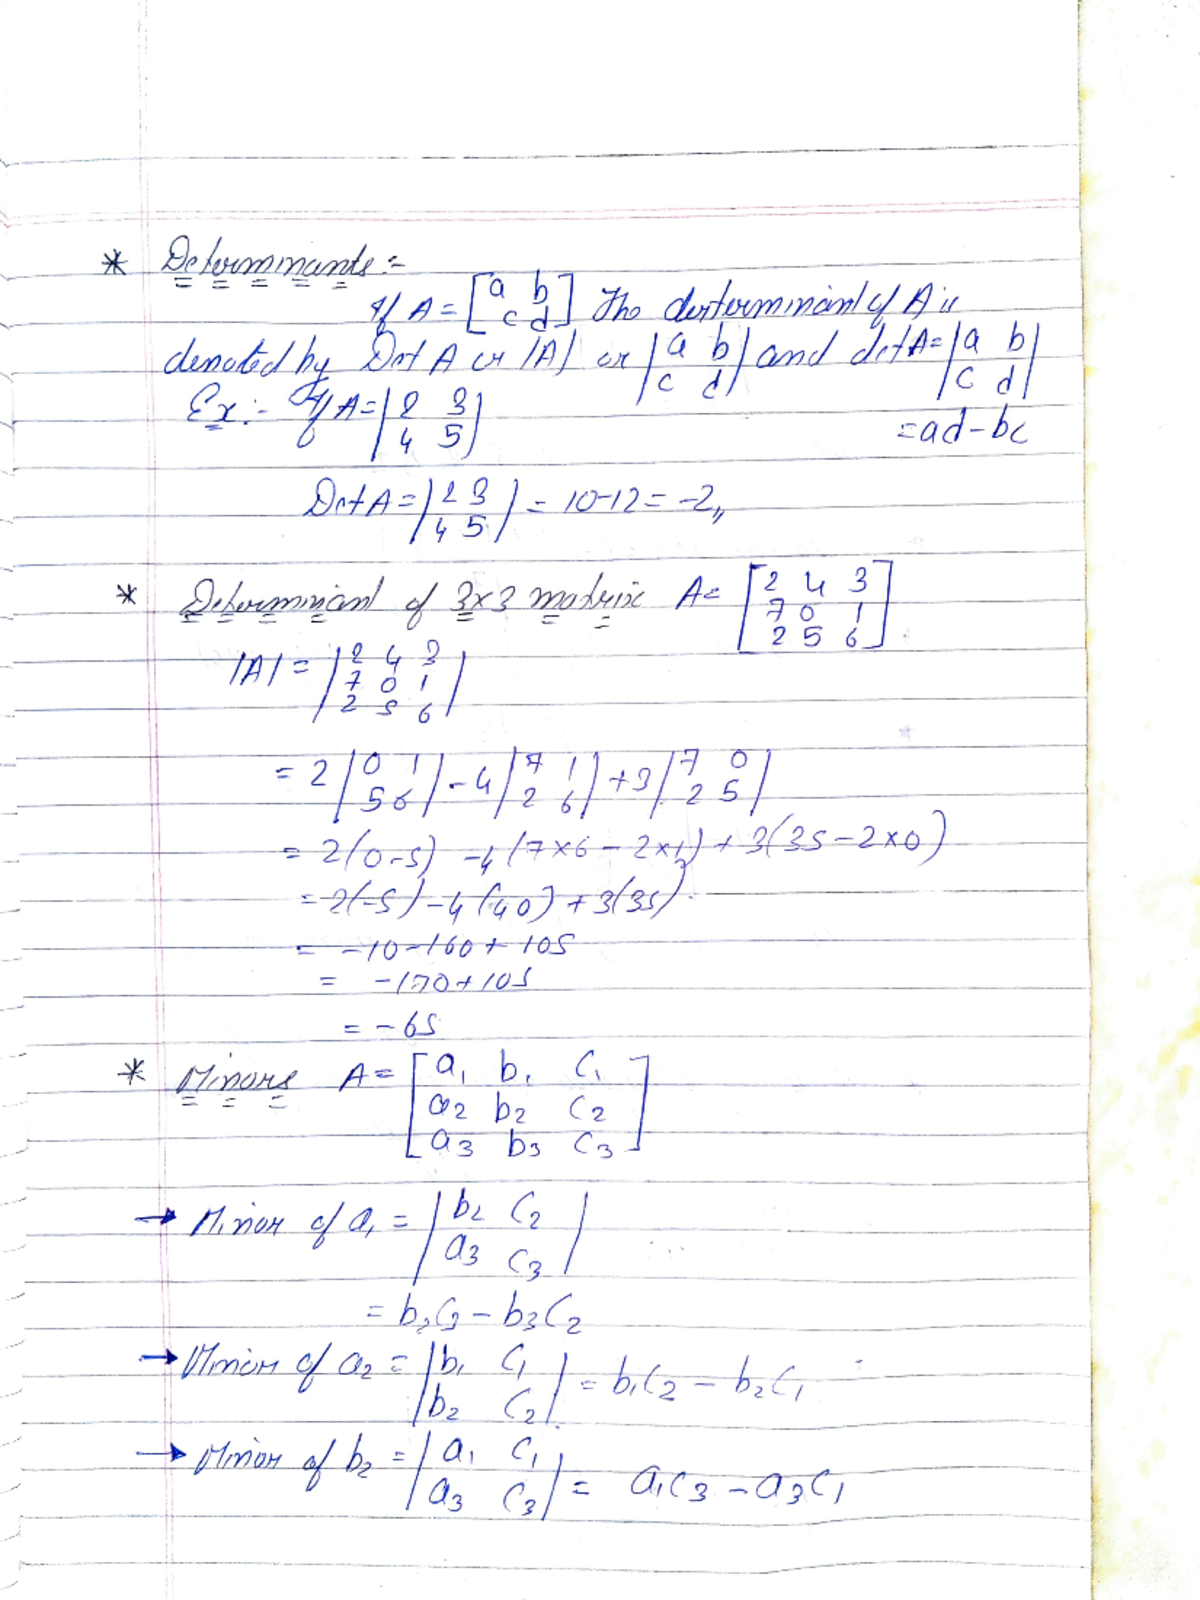 * Determinants :-
If A = [a b
c d] The derterminant of A is
denoted by Det A or |A| or |a b
c d| and det A = |a b
c d|
= ad - bc
Ex :- If A = |2 3
4 5|
Det A = |2 3
4 5| = 10-12 = -2,,
* Determinant of 3x3 matrix A = [2 4 3
7 0 1
2 5 6]
|A| = |2 4 3
7 0 1
2 5 6|
= 2|0 1
5 6| - 4|7 1
2 6| + 3|7 0
2 5|
= 2(0-5) -4(7x6 - 2x1) + 3(35 - 2x0)
= 2(-5) -4(40) + 3(35)
= -10-160+105
= -170+105
= -65
* Minors A = [a₁ b₁ c₁
a₂ b₂ c₂
a₃ b₃ c₃]
→ Minor of a₁ = |b₂ c₂
a₃ c₃|
= b₂c₃ - b₃c₂
→ Minor of a₂ = |b₁ c₁
b₂ c₂| = b₁c₂ - b₂c₁
→ Minor of b₂ = |a₁ c₁
a₃ c₃| = a₁c₃ - a₃c₁